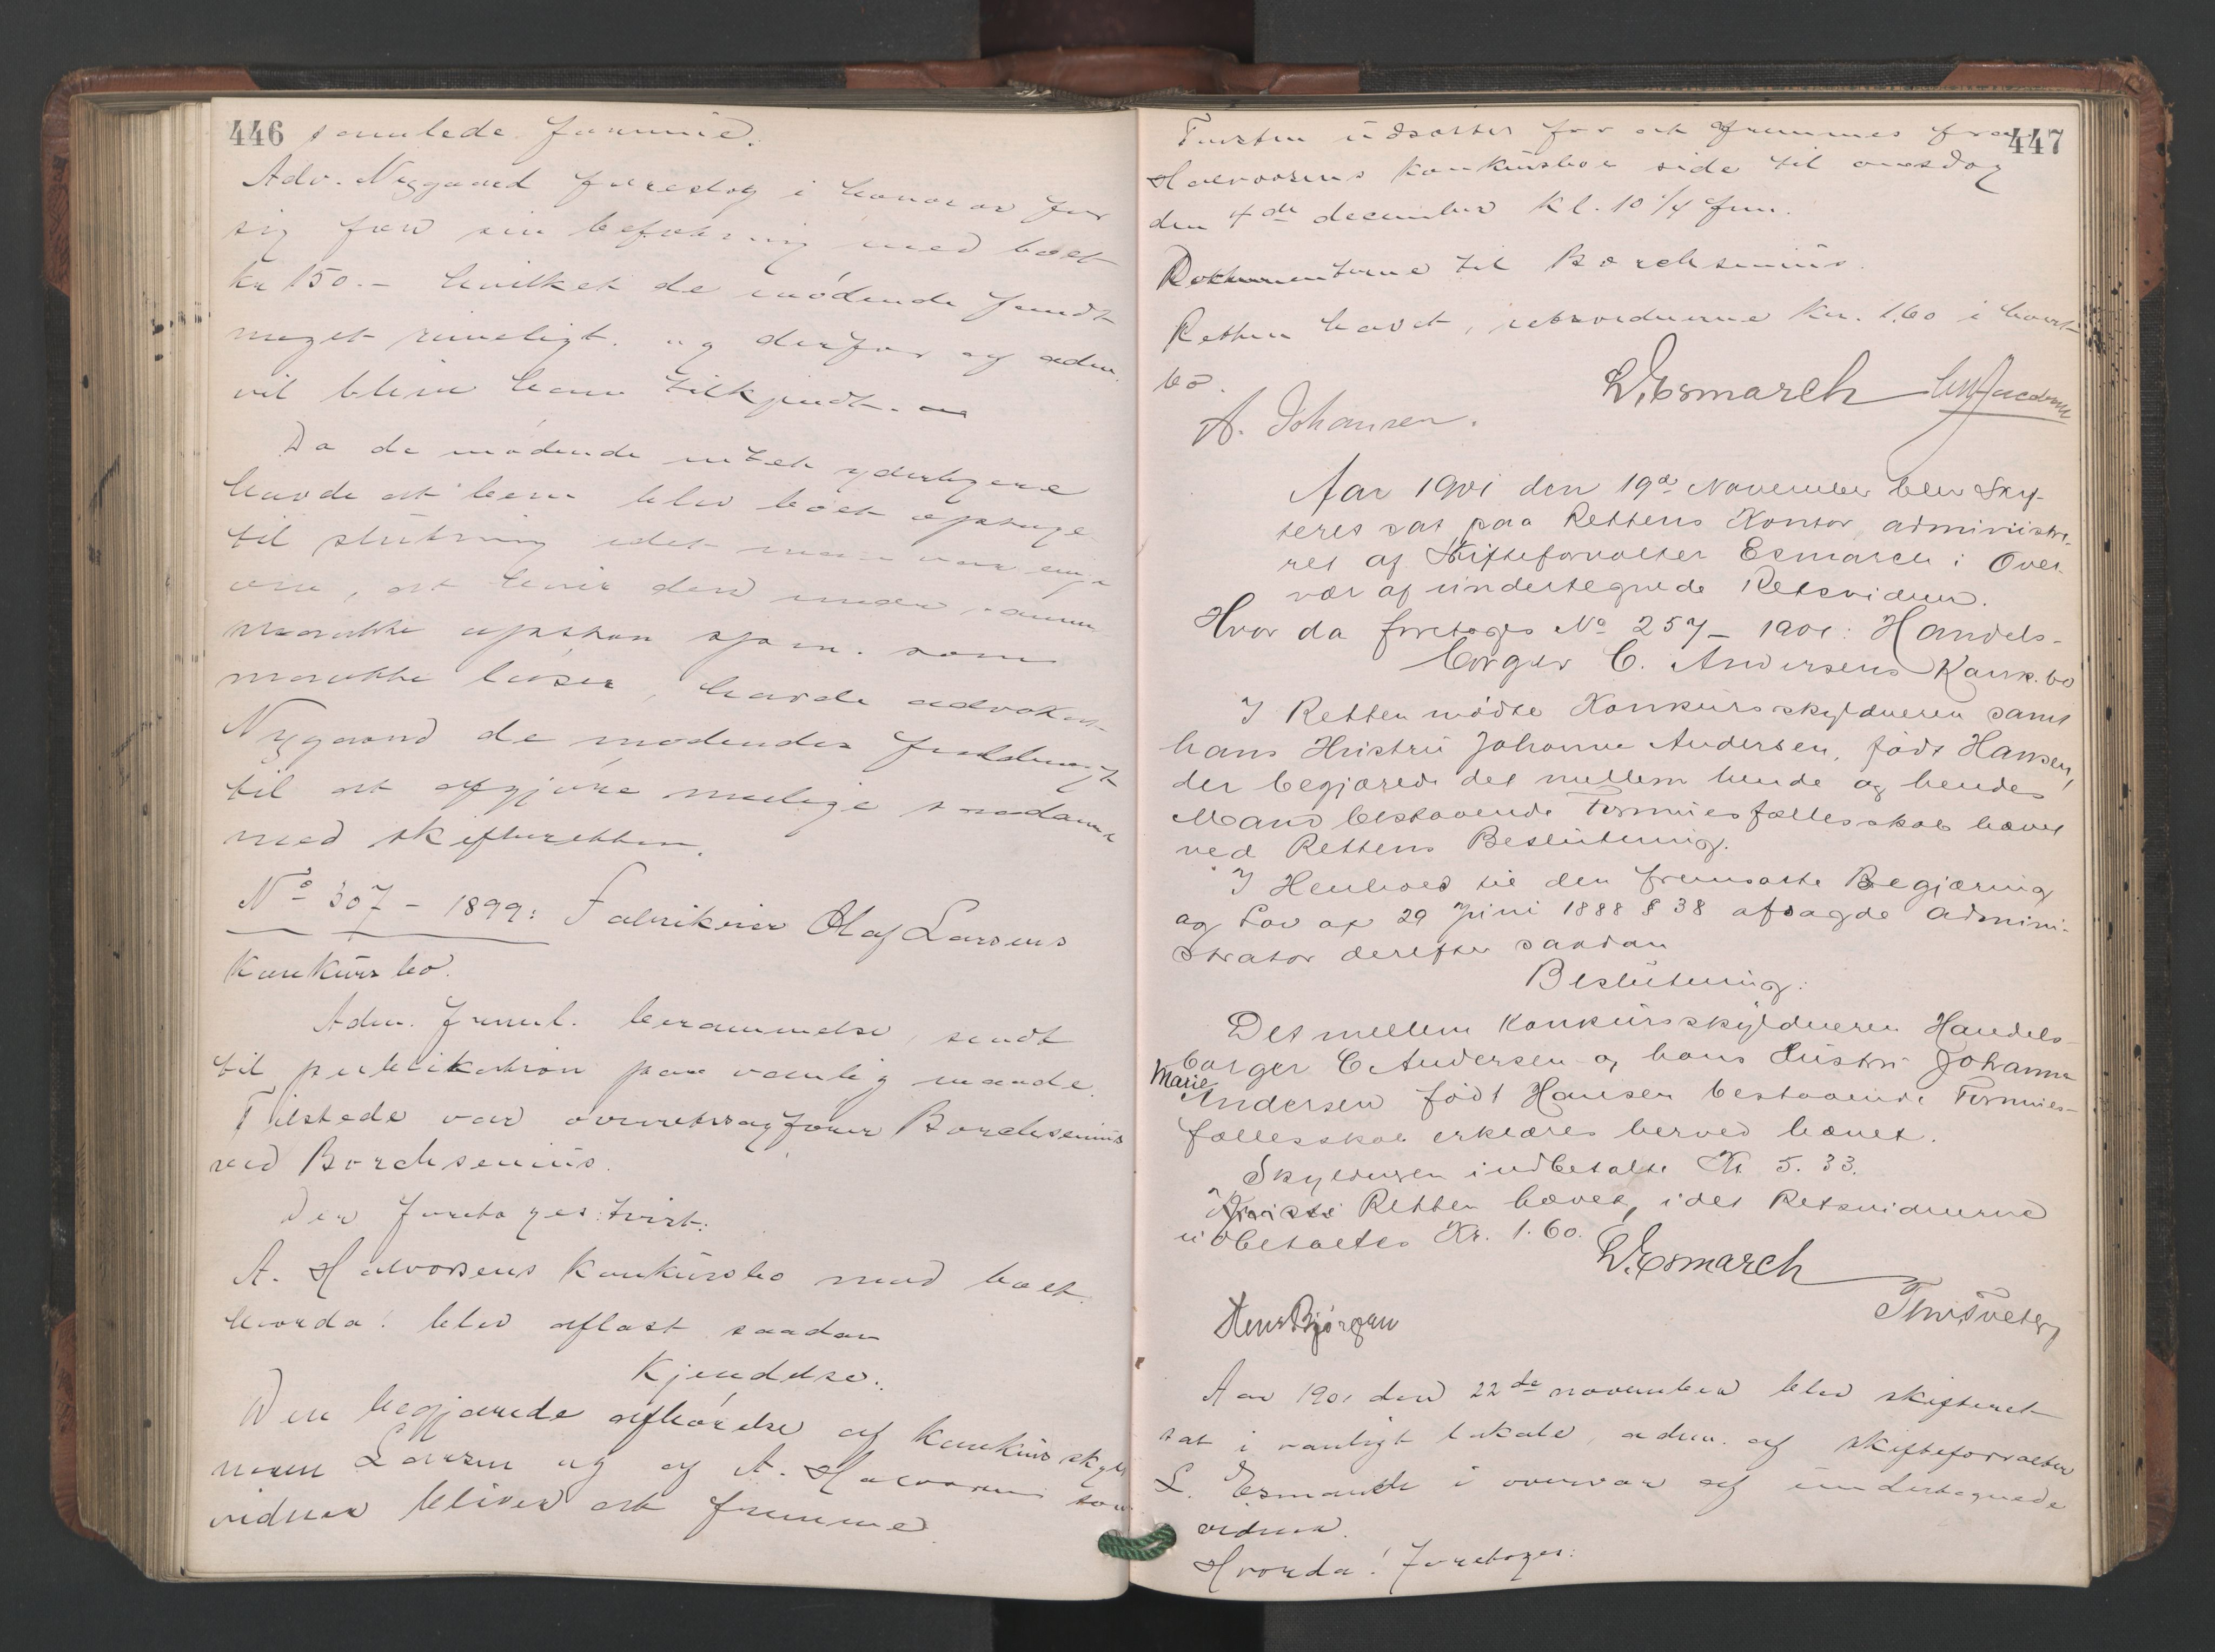 446
samlede
Adv. Nygaard foreslog i honorar for
sig for sin befatning med boet
kr 150.- hvilket de mødende fandt
meget rimeligt. og derfor og adm.
vil blive ham tilkjendt.
Da de mødende intet yderligere
havde at bem. blev boet optage
til slutning idet man var enige
om, at hvis der under
maatte opstaa spm. som
maatte løses, havde advokat
Nygaard de mødendes fuldmagt
til at afgjøre mulige saadanne
med skifteretten.
No 307 - 1899: Fabrikeier Olaf Larsens
Konkursbo.
Adm. freml. berammelse, sendt
til publikation paa vanlig maade.
Tilstede var overretssagfører Borchsenius
ved Borchsenius.
Der foretoges: Tvist:
A. Halvorsens Konkursbo mod boet.
hvorda! blev aflast saadan
Kjendelse:
Den begjærede afhørelse af konkursskyld
neren Larsen og af A. Halvorsen som
vidner bliver at fremme
447
Tvisten udsættes for at fremmes fra
Halvorsens konkursbos side til onsdag
den 4de december kl. 10 1/4 fm.
Dokumenterne til Borchsenius.
Retten hævet, retsvidnerne kr. 1.60 i hvert
bo.
L. Esmarch
A. Johansen.
Aar 1901 den 19de November blev Skif-
teret sat paa Rettens Kontor, administre-
ret af Skifteforvalter Esmarch i Over-
vær af undertegnede Retsvidner.
Hvor da foretoges No 257 - 1901: Handels-
borger C. Andersens Konk.bo
I Retten mødte Konkursskyldneren samt
hans Hustru Johanne Andersen, født Hansen,
der begjærede det mellem hende og hendes
Mand bestaaende Formuesfællesskab hævet
ved Rettens Beslutning.
I Henhold til den fremsatte Begjæring
og Lov af 29 Juni 1888 § 38 afsagde Admini-
strator derefter saadan
Beslutning:
Det mellem Konkursskyldneren Handels-
borger C Andersen og hans Hustru Johanne
Marie
Andersen født Hansen bestaaende Formues-
fællesskab erklæres herved hævet.
Skyldneren indbetalte Kr 5.33.
Retten hævet, idet Retsvidnerne
udbetaltes Kr. 1.60.
L. Esmarch
Thv Tveterg
Hans Bjørgan
Aar 1901 den 22de november blev skifteret
sat i vanligt lokale, adm. af skifteforvalter
L. Esmarch i overvær af undertegnede
vidner.
Hvorda! foretoges: